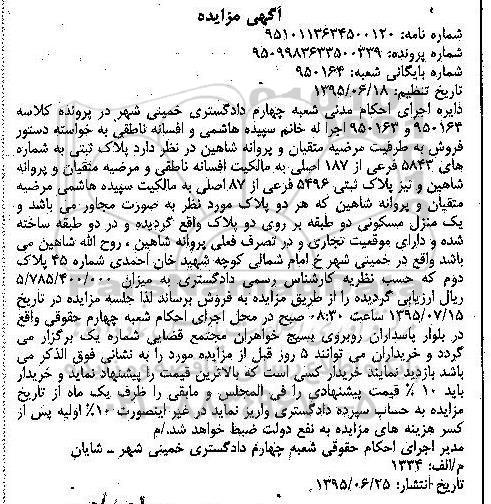 آگهی مزایده
شماره نامه: ۹۵۱۰۱۱۳۶۳۴۵۰۰۱۲۰
شماره پرونده: ۹۵۰۹۹۸۳۶۳۳۵۰۰۳۳۹
شماره بایگانی شعبه: ۹۵۰۱۶۴
تاریخ تنظیم: ۱۳۹۵/۰۶/۱۸
دایره اجرای احکام مدنی شعبه چهارم دادگستری خمینی شهر در پرونده کلاسه
۹۵۰۱۶۴ و ۹۵۰۱۶۳ اجرا له خانم سپیده هاشمی و افسانه ناطقی به خواسته دستور
فروش به طرفیت مرضیه متقیان و پروانه شاهین در نظر دارد پلاک ثبتی به شماره
های ۵۸۴۳ فرعی از ۱۸۷ اصلی به مالکیت افسانه ناطقی و مرضیه متقیان و پروانه
شاهین و نیز پلاک ثبتی ۵۴۹۶ فرعی از ۸۷ اصلی به مالکیت سپیده هاشمی مرضیه
متقیان و پروانه شاهین که هر دو پلاک مورد نظر به صورت مجاور می باشد و
یک منزل مسکونی دو طبقه بر روی دو پلاک واقع گردیده و در دو طبقه ساخته
شده و دارای موقعیت تجاری و در تصرف فعلی پروانه شاهین ، روح الله شاهین می
باشد واقع در خمینی شهر خ امام شمالی کوچه شهید خان احمدی شماره ۴۵ پلاک
دوم که حسب نظریه کارشناس رسمی دادگستری به میزان ۵/۷۸۵/۴۰۰/۰۰۰
ریال ارزیابی گردیده را از طریق مزایده به فروش برساند لذا جلسه مزایده در تاریخ
۱۳۹۵/۰۷/۱۵ ساعت ۰۸:۳۰ صبح در محل اجرای احکام شعبه چهارم حقوقی واقع
در بلوار پاسداران روبروی بسیج خواهران مجتمع قضایی شماره یک برگزار می
گردد و خریداران می توانند ۵ روز قبل از مزایده مورد را به نشانی فوق الذکر می
باشد بازدید نمایند خریدار کسی است که بالاترین قیمت را پیشنهاد نماید و خریدار
باید ۱۰ % قیمت پیشنهادی را فی المجلس و مابقی را ظرف یک ماه از تاریخ
مزایده به حساب سپرده دادگستری واریز نماید در غیر اینصورت ۱۰% اولیه پس از
کسر هزینه های مزایده به نفع دولت ضبط خواهد شد./م
مدیر اجرای احکام حقوقی شعبه چهارم دادگستری خمینی شهر ـ شایان
م/الف: ۱۳۳۴
تاریخ انتشار: ۱۳۹۵/۰۶/۲۵